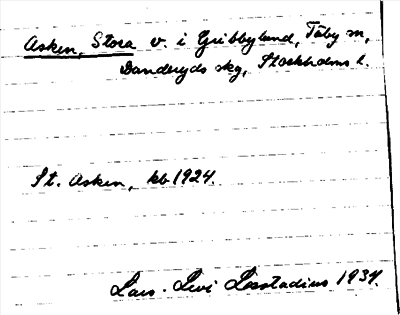 Asken, Stora v. i Gribbylund, Täby sn,
Danderyds skg, Stockholms l.
St. Asken, kb 1924.
Lars-Levi Læstadius 1934.